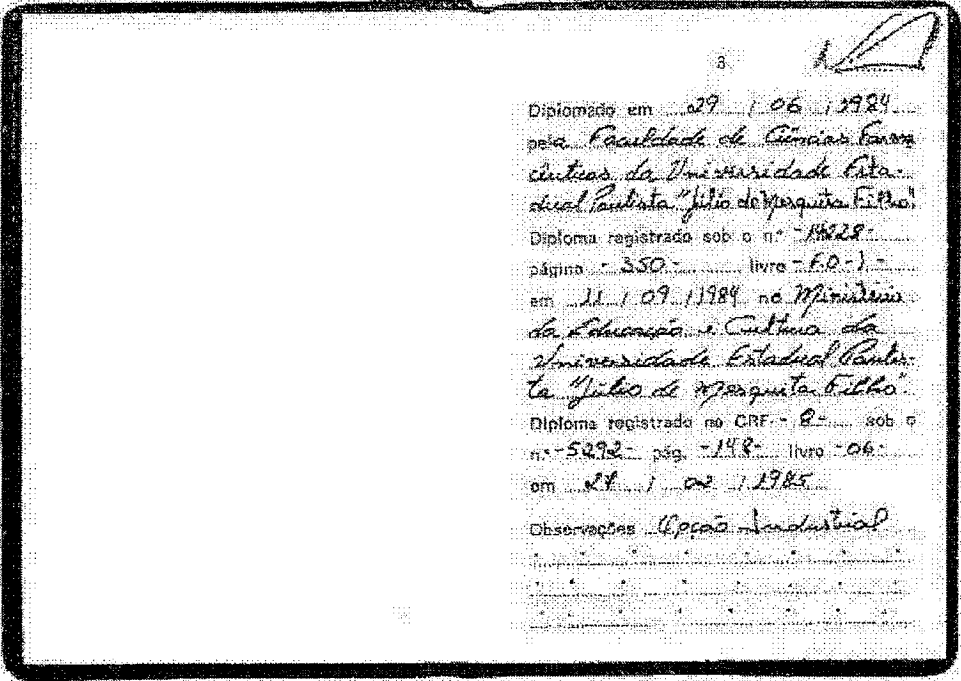 3
Diplomado em 29 / 06 / 1984
pela Faculdade de Ciências Farma
cêuticas da Universidade Esta-
dual Paulista "Júlio de Mesquita Filho"
Diploma registrado sob o n.º
página - 350 - livro - F.O - 1 -
em 11 / 09 / 1984 no Ministério
da Educação e Cultura da
Universidade Estadual Paulis-
ta "Júlio de Mesquita Filho".
Diploma registrado no CRF - 8 - sob o
n.º - 5292 - pág. - 148 - livro - 06 -
em / 02 / 1985
Observações Opção Industrial